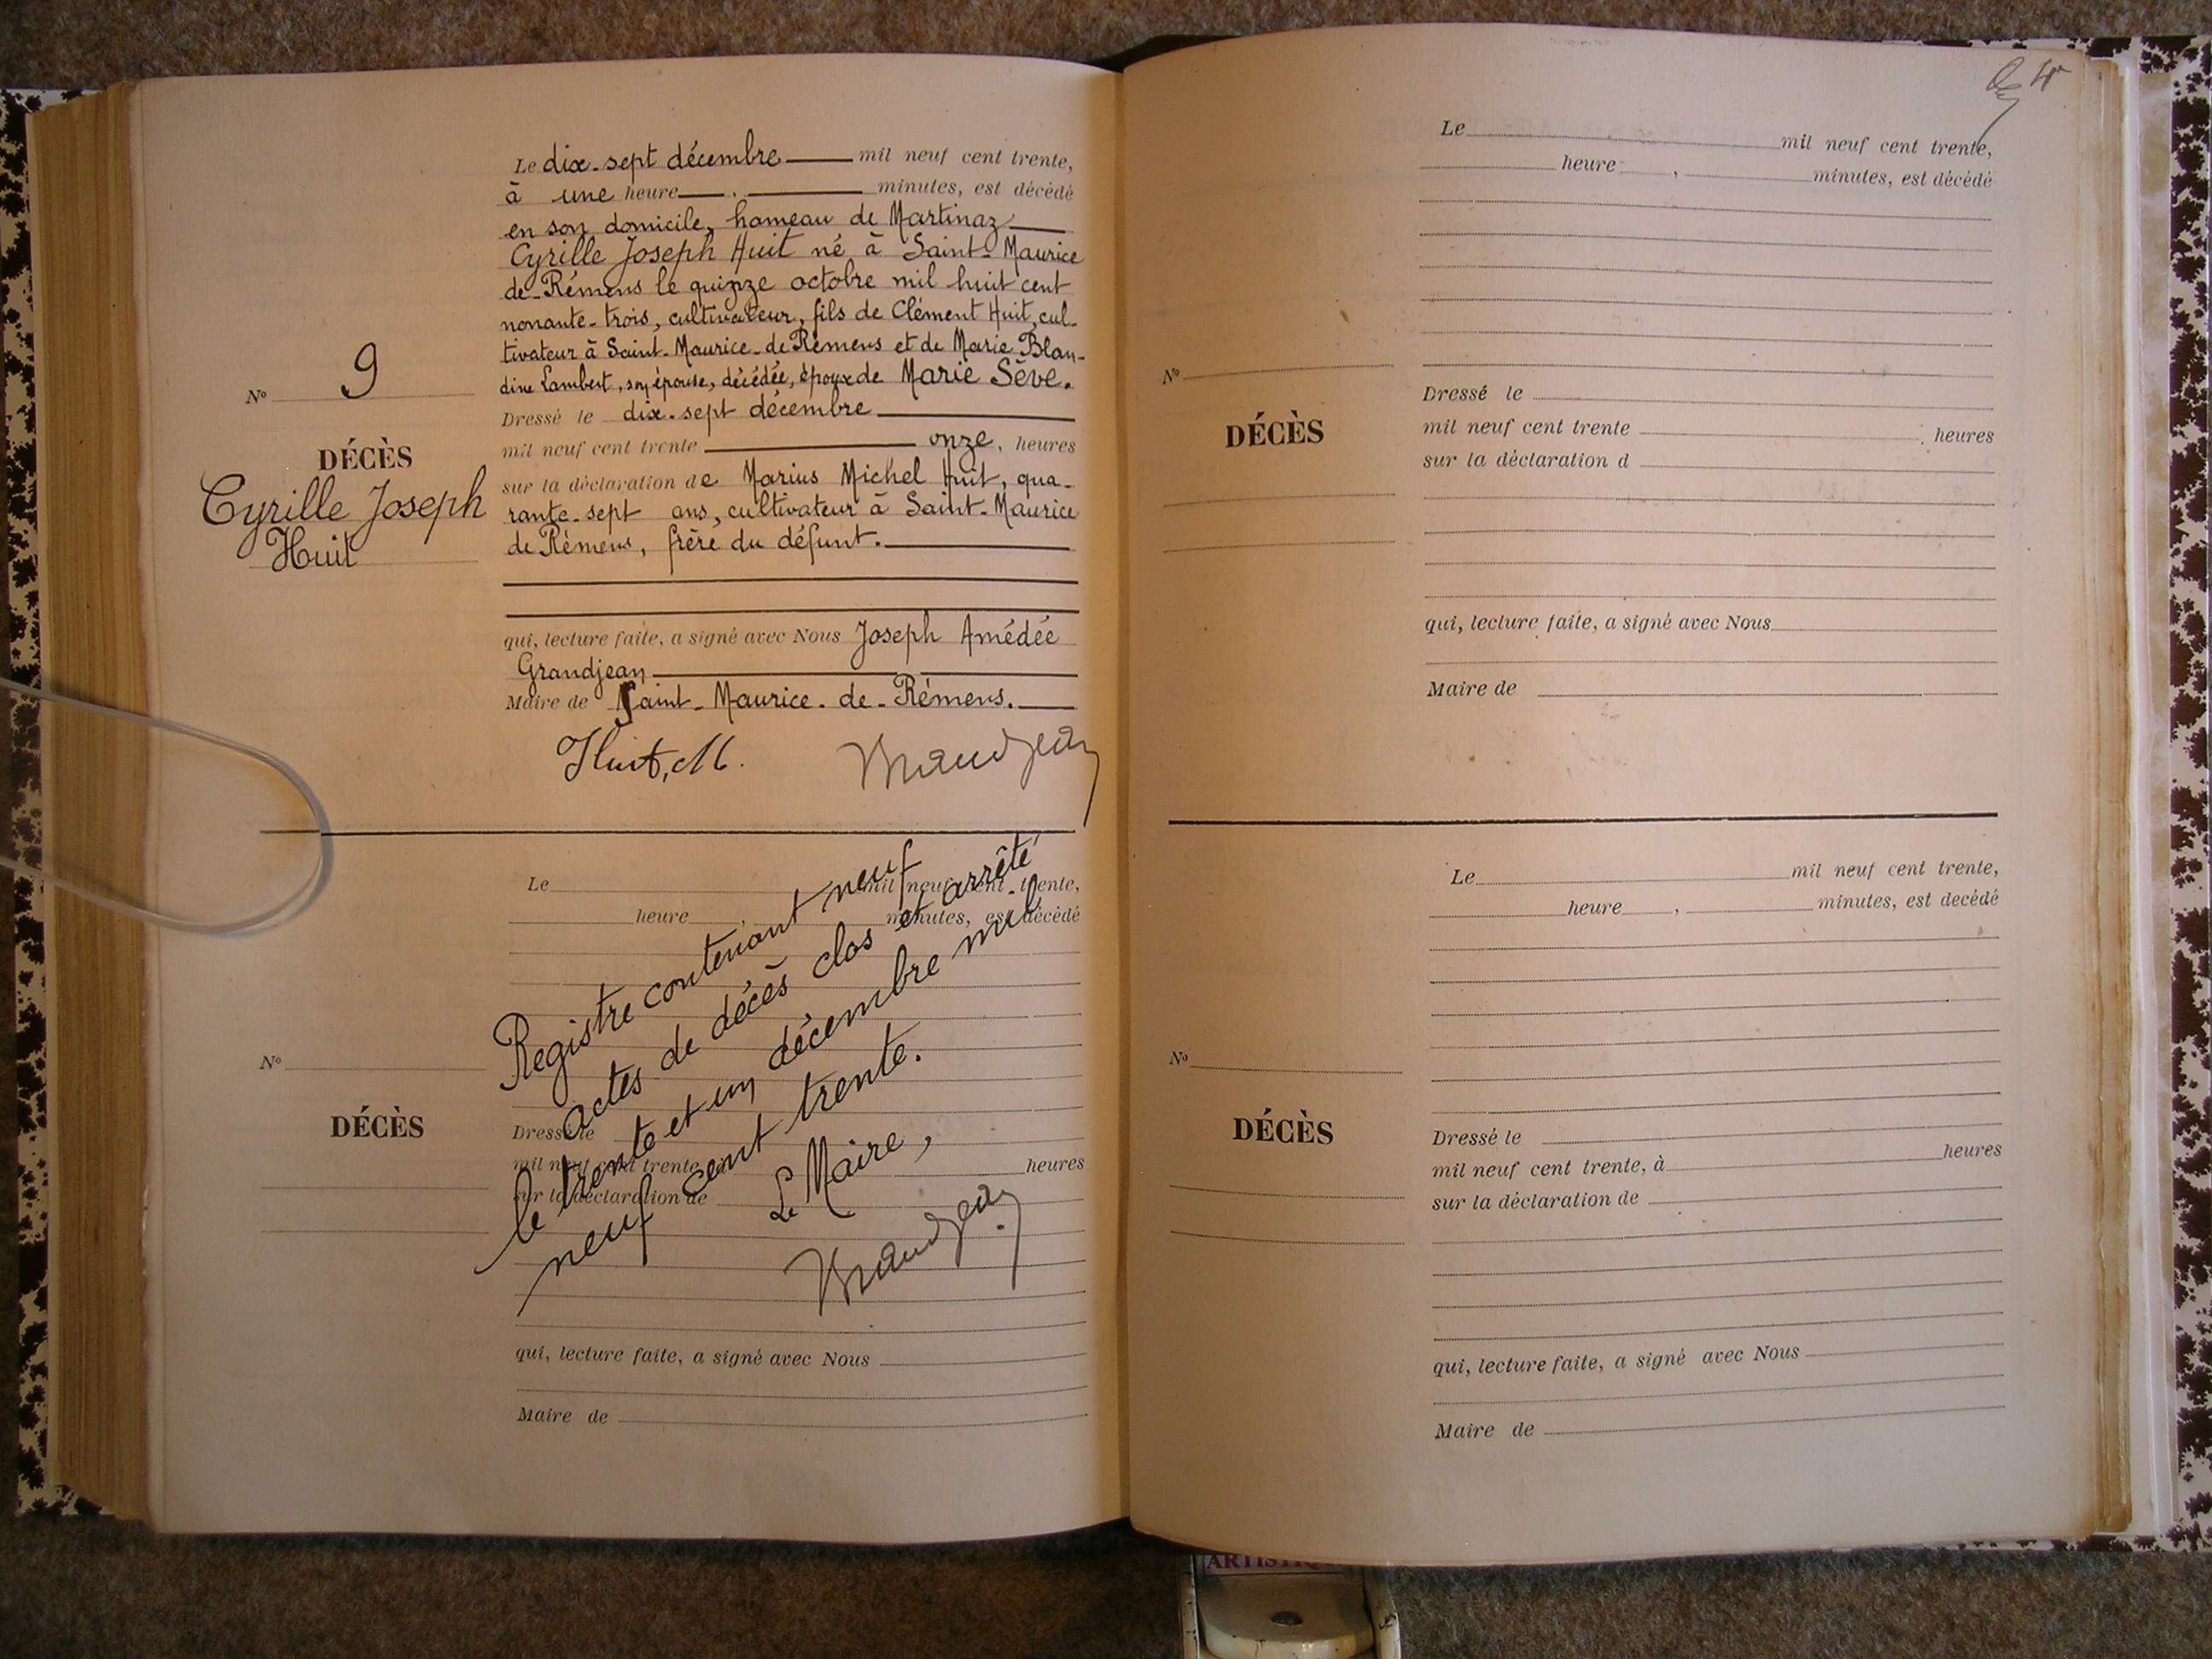 Le dix-sept décembre mil neuf cent trente,
à une heure , minutes, est décédé
en son domicile, hameau de Martinaz
Cyrille Joseph Huit né à Saint-Maurice
de-Rémens le quinze octobre mil huit cent
nonante-trois, cultivateur, fils de Clément Huit, cul-
tivateur à Saint-Maurice-de Rémens et de Marie Blan-
dine Lambert, son épouse, décédée, époux de Marie Sève.
Nº 9
Dressé le dix-sept décembre
mil neuf cent trente onze, heures
DÉCÈS
Cyrille Joseph
Huit
sur la déclaration de Marius Michel Huit, qua-
rante-sept ans, cultivateur à Saint-Maurice
de Rémens, frère du défunt.
qui, lecture faite, a signé avec Nous Joseph Amédée
Grandjean
Maire de Saint-Maurice-de-Rémens.
Huit, M. Grandjean
Le mil neuf cent trente,
heure , minutes, est décédé
Registre contenant neuf
actes de décès clos et arrêté
le trente et un décembre mil
neuf cent trente.
Le Maire,
Grandjean
Nº
DÉCÈS
Dressé le
mil neuf cent trente heures
sur la déclaration de
qui, lecture faite, a signé avec Nous
Maire de
Le mil neuf cent trente,
heure , minutes, est décédé
Nº
DÉCÈS
Dressé le
mil neuf cent trente , heures
sur la déclaration d
qui, lecture faite, a signé avec Nous
Maire de
Le mil neuf cent trente,
heure , minutes, est decédé
Nº
DÉCÈS
Dressé le
mil neuf cent trente, à heures
sur la déclaration de
qui, lecture faite, a signé avec Nous
Maire de